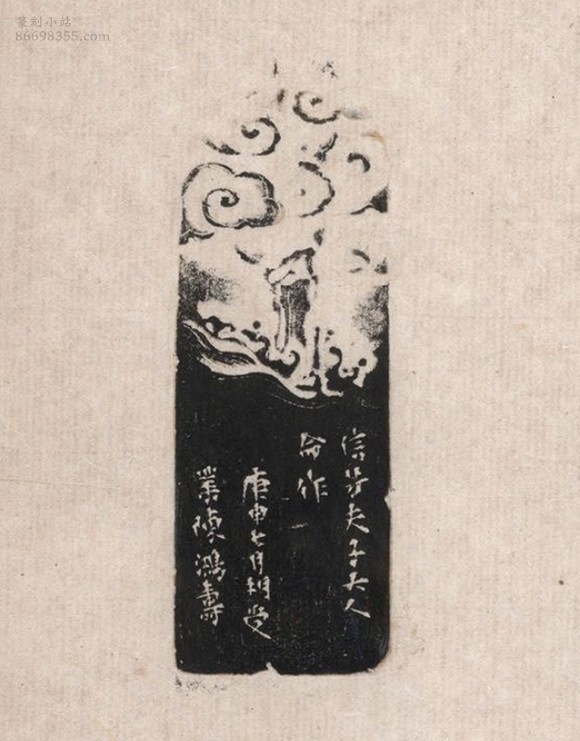 篆刻小站
86698355.com
信芳夫子大人
命作
庚申七月朔受
業陳鴻壽